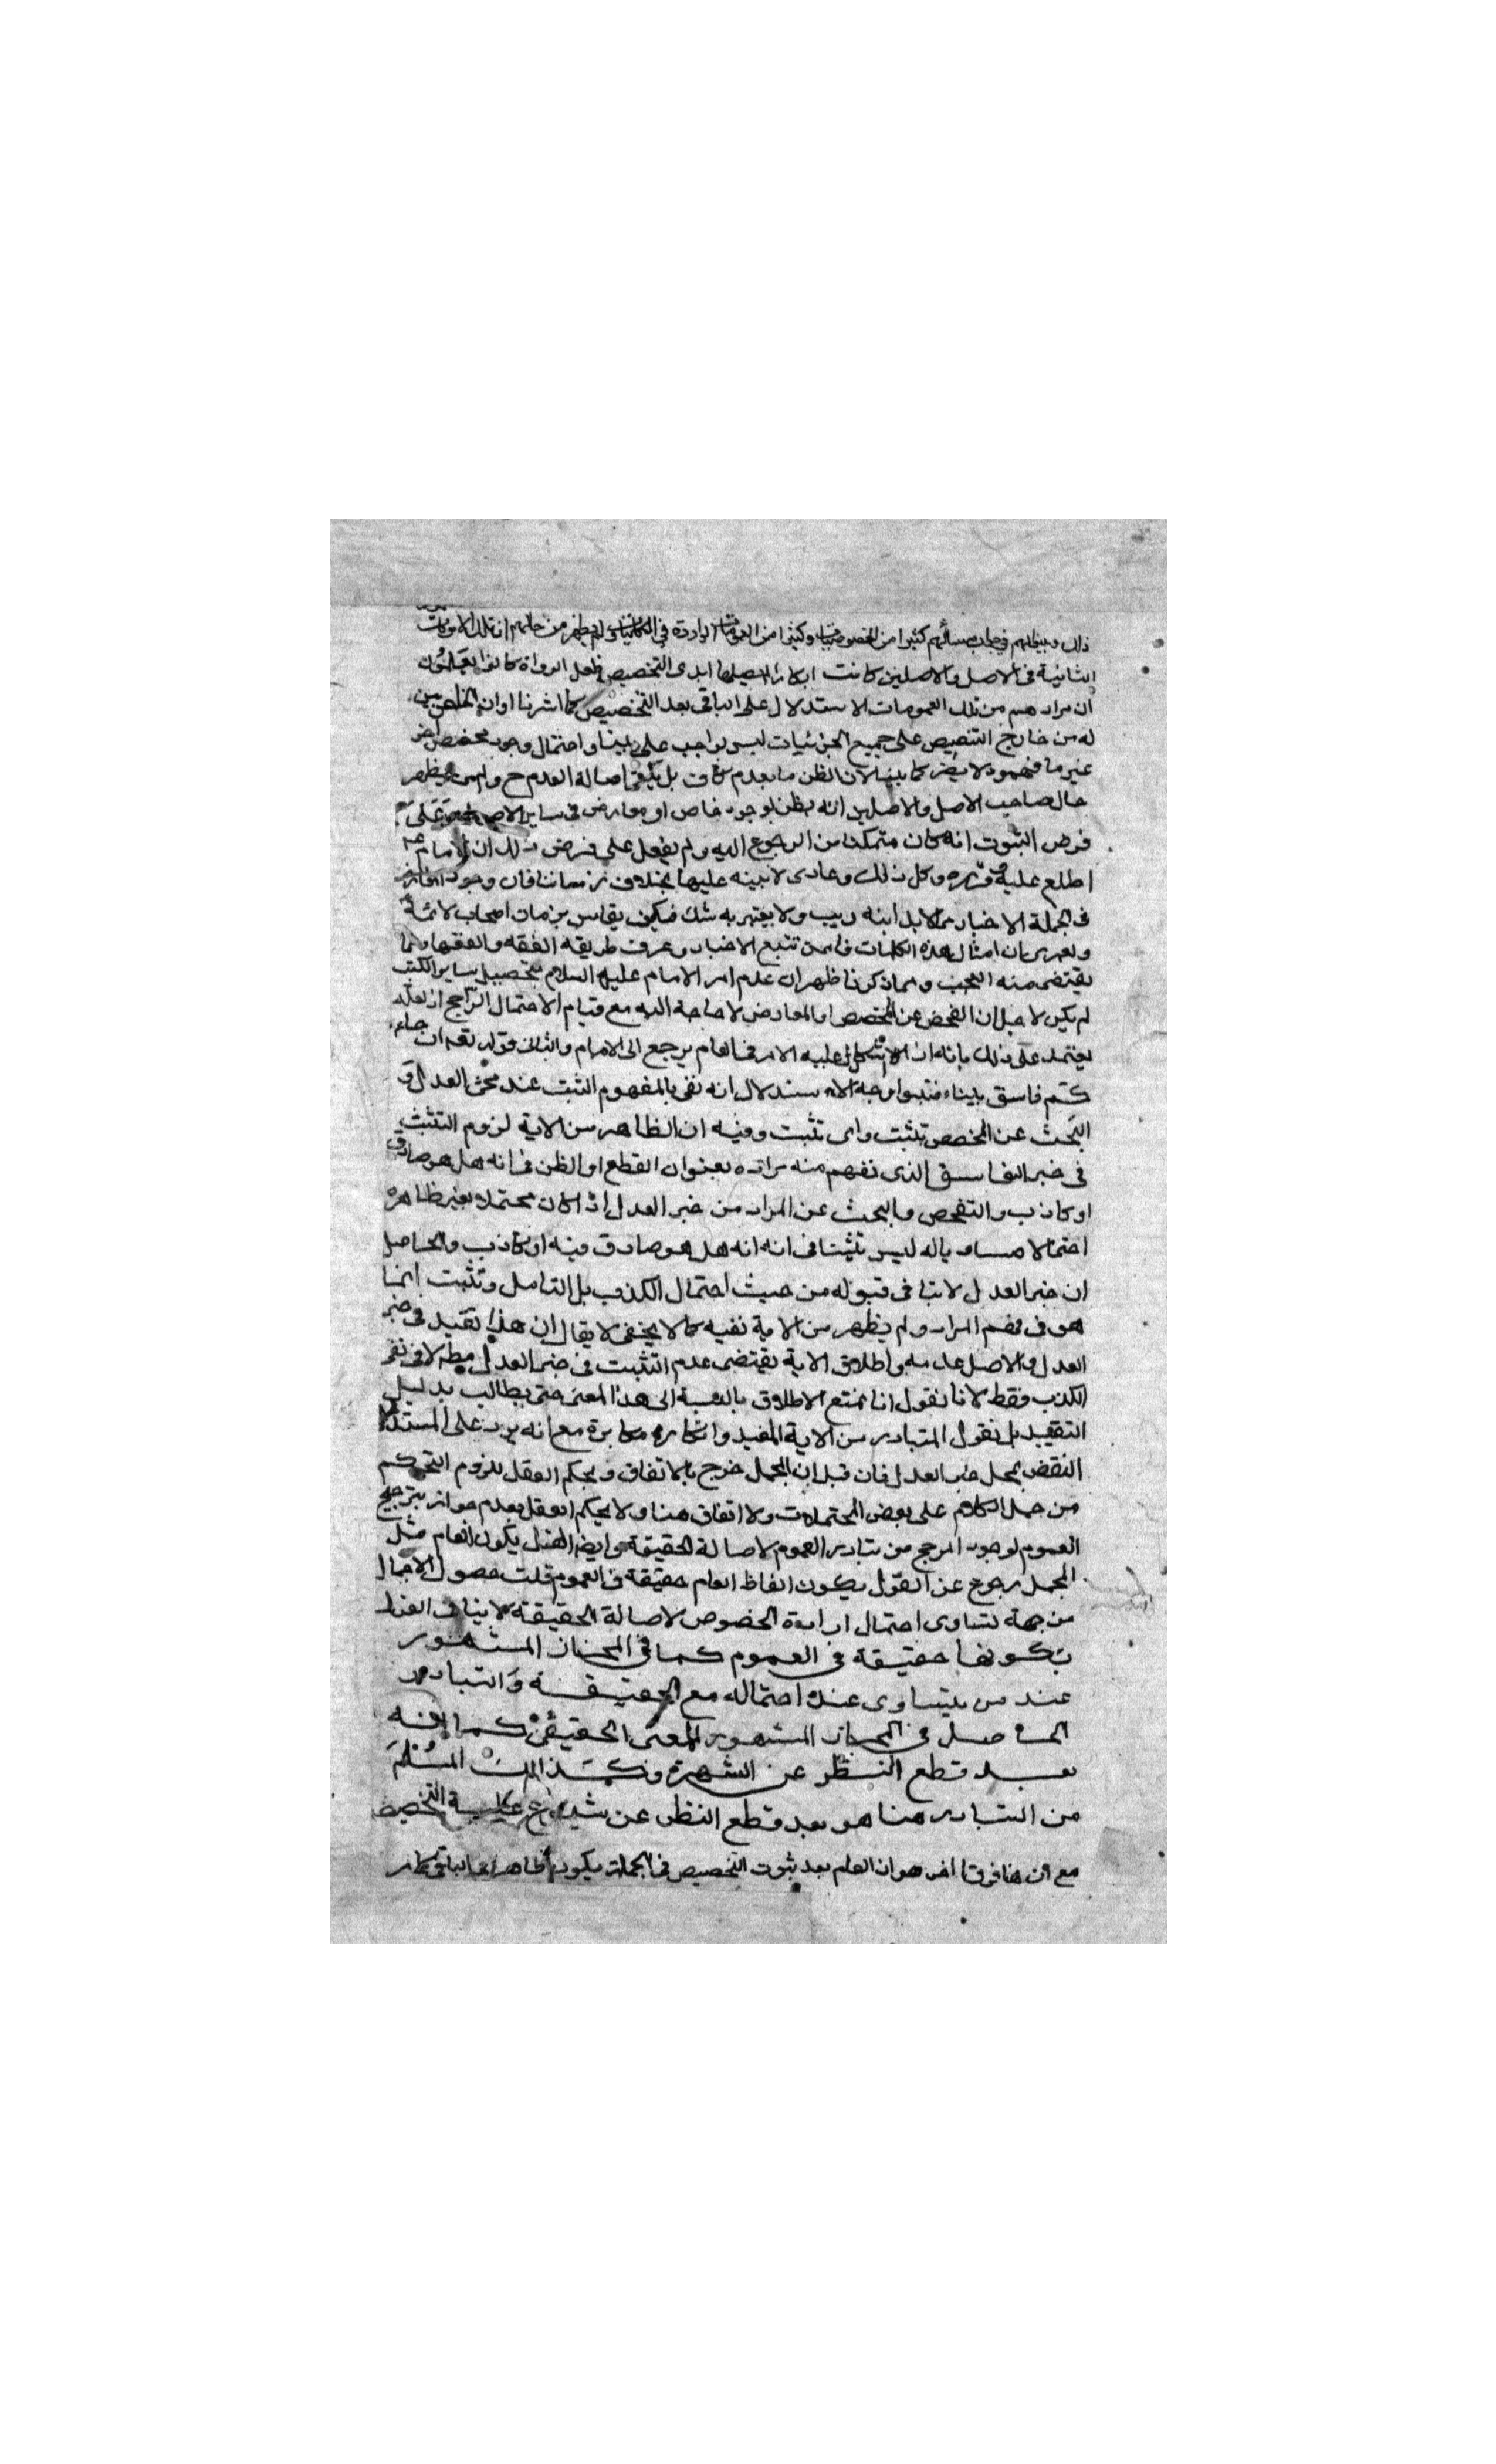 ذلك وبيناهم في جواب مسائلهم كثيرا من الخصوصيات وكثيرا من العمومات الواردة في ولم يظهر من حالهم ان تلك الروايات
الثانية في الاصل والاصلين كانت التخصيص فلعل الرواة كانوا يعلمون
ان مرادهم من تلك العمومات الاستدلال على الباقي بعد التخصيص كما اشرنا اوان
له من خارج التنصيص على جميع الجزئيات ليس بواجب علي واحتمال وجود مخصص اخر
غير ما فهموه لا يضر كما بينا لان الظن ما بعدم كاف بل يكفي اصالة العدم ح ولم يظهر
حال صاحب الاصل والاصلين انه يظن بوجود خاص او معارض في ساير الاصول وعلى
فرض الثبوت انه كان متمكنا من الرجوع اليه ولم يفعل على فرض ذلك ان الامام ع
اطلع عليه وقرره وكل ذلك دعاوى لا بينه عليها بخلاف زماننا فان وجود
في الجملة الاخبار مما لا ريب ولا يعتريه شك فكيف يقاس بزمان اصحاب الائمة
ولعمري ان امثال هذه الكلمات ممن تتبع الاخبار وعرف طريقة الفقه والفقهاء مما
يقتضى منه العجب ومما ذكرنا ظهر ان عدم امر الامام عليه السلام بتحصيل ساير الكتب
لم يكن لاجل ان الفحص عن المخصص او المعارض لا حاجة اليه مع قيام الاحتمال الراجح ان لعله
يعتمد على ذلك بانه ان اشكل عليه الامر في العام يرجع الى الامام والثاني قوله تعه ان جاء
كم فاسق بنباء فتبينوا وجه الاستدلال انه نفى بالمفهوم التثبت عند مجئ العدل و
البحث عن المخصص تثبت واى تثبت وفيه ان الظاهر من الاية لزوم التثبت
في خبر الفاسق الذى نفهم منه مراده بعنوان القطع او الظن في انه هل هو صادق
او كاذب والتفحص والبحث عن المراد من خبر العدل اذا كان محتملا لغير ظاهره
احتمالا مساويا له ليس تثبتا في انه هل هو صادق فيه او كاذب والحاصل
ان خبر العدل لا تنافى قبوله من حيث احتمال الكذب بل التامل وتثبت انما
هو في فهم المراد ولم يظهر من الاية نفيه كما لا يخفى لا يقال ان هذا تقييد في خبر
العدل والاصل عدمه واطلاق الاية يقتضى عدم التثبت في خبر العدل مطلقا لا في نفى
الكذب فقط لانا نقول انا نمنع الاطلاق بالنسبة الى هذا المعنى حتى يطالب بدليل
التقييد بل نقول المتبادر من الاية المقيد وانكاره مكابرة مع انه يرد على المستدل
النقض بمجمل خبر العدل فان قيل ان المجمل خرج بالاتفاق وبحكم العقل للزوم التحكم
من حمل الكلام على بعض المحتملات ولا اتفاق هنا ولا يحكم العقل بعدم جواز ترجيح
العموم لوجود المرجح من تبادر العموم لاصالة الحقيقة وايضه القول بكون العام مثل
المجمل رجوع عن القول بكون الفاظ العام حقيقة في العموم قلت حصول الاجمال
من جهة تساوى احتمال ارادة الخصوص لاصالة الحقيقة لا ينافى القول
بكونها حقيقة في العموم كما في المجاز المشهور
عند من يتساوى عنده احتماله مع الحقيقة والتبادر
الحاصل في المجاز المشهور للمعنى الحقيقي كما انه
بعد قطع النظر عن الشهرة فكذلك المسلم
من التبادر هنا هو بعد قطع النظر عن شيوع غلبة التخصيص
مع ان هنا فرقا اخر هو ان العام بعد ثبوت التخصيص في الجملة يكون ظاهرا